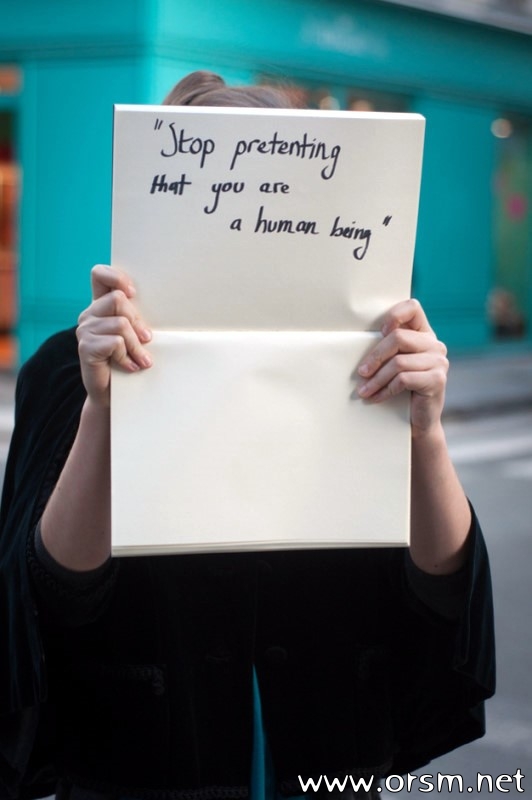 "Stop pretenting
that you are
a human being"
www.orsm.net